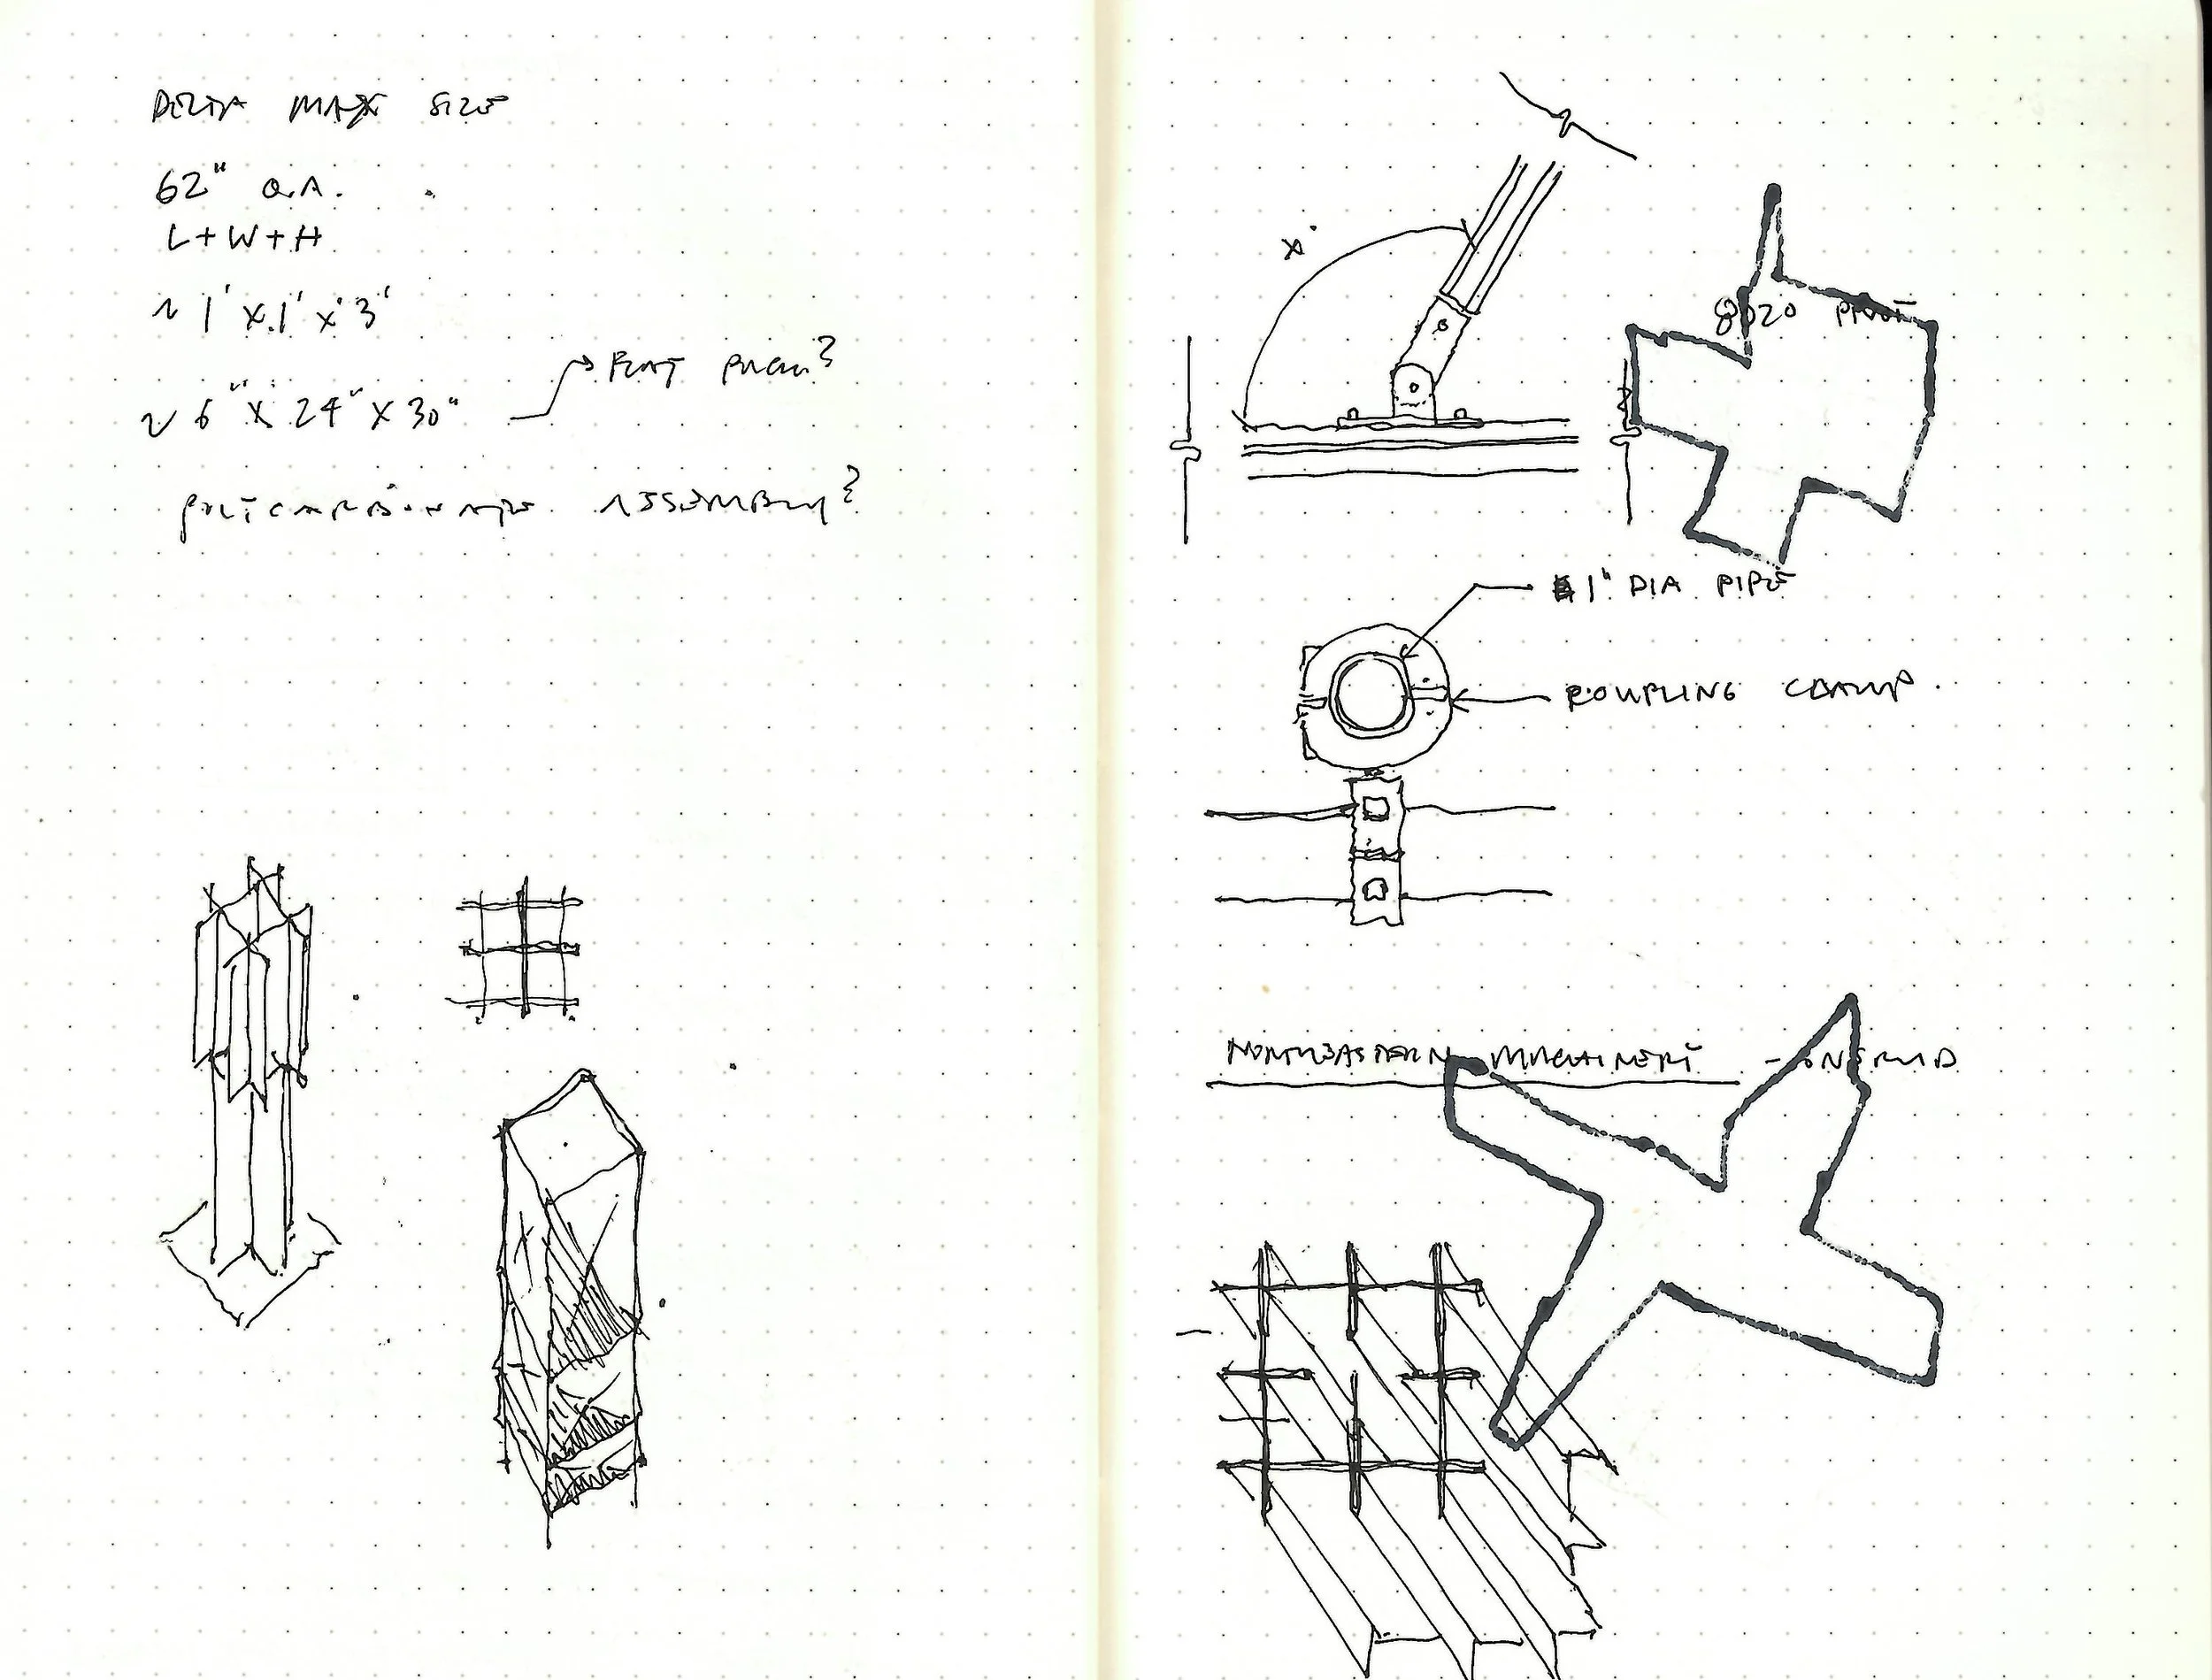 DELTA MAX SIZE
62" O.A.
L+W+H
~ 1' x 1' x 3'
~ 6" x 24" x 30"
FLAT PACK?
POLYCARBONATE ASSEMBLY?
x°
8020 PIVOT
1" DIA PIPE
COUPLING CLAMP.
NORTHEASTERN MACHINERY